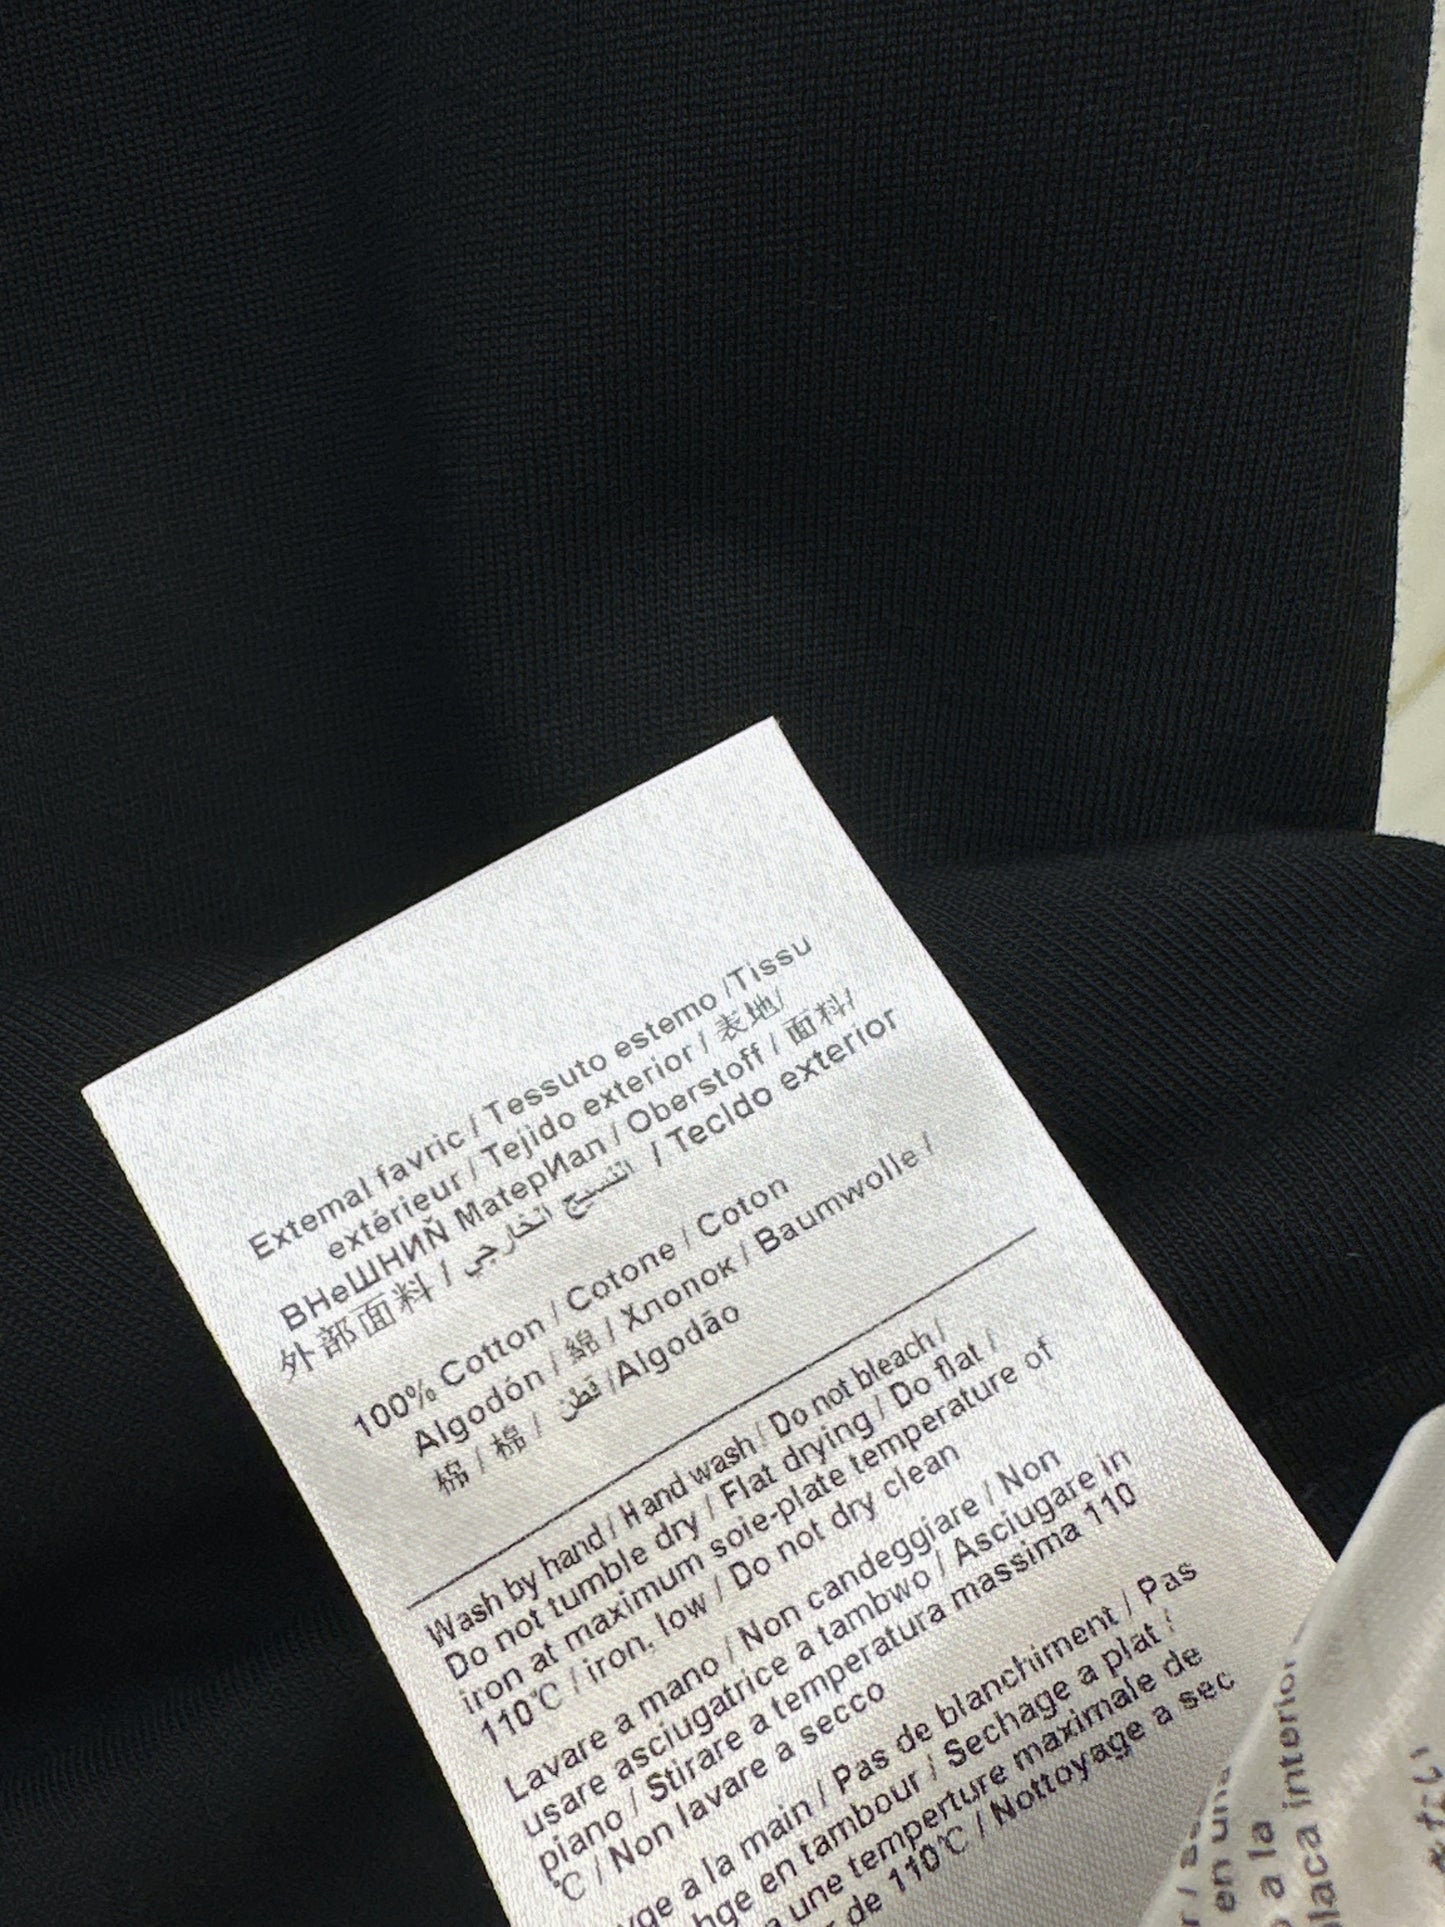 Extemal favric / Tessuto estemo /Tissu
extérieur / Tejido exterior / 表地/
ВНеШНИЙ МатерИап / Oberstoff / 面料/
外部面料 / النسيج الخارجي / Tecldo exterior
100% Cotton / Cotone / Coton
Algodón / 綿 / Хлопок / Baumwolle /
棉 / 棉 / قطن /Algodão
Wash by hand / Hand wash / Do not bleach /
Do not tumble dry / Flat drying / Do flat /
iron at maximum soie-plate temperature of
110℃ / iron, low / Do not dry clean
Lavare a mano / Non candeggiare / Non
usare asciugatrice a tambwo / Asciugare in
piano / Stirare a temperatura massima 110
℃ / Non lavare a secco
a la main / Pas de blanchiment / Pas
en tambour / Sechage a plat /
a une temperture maximale de
de 110℃ / Nottoyage a sec
interior
en una
a la
laca